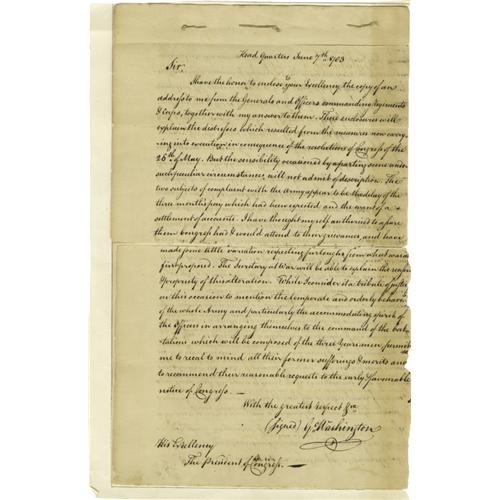 Head Quarters June 7th 1783
Sir,
I have the honor to enclose your Excellency the copy of an
address to me from the Generals and Officers commanding Regiments
& Corps, together with my answer to them. These enclosures will
explain the distresses which resulted from the measures now carry-
ing into execution in consequence of the resolutions of Congress of the
26th of May. But the sensibility occasioned by a parting scene under
such peculiar circumstances, will not admit of description. The
two subjects of complaint with the Army appear to be the delay of the
three months pay which had been expected and the want of a
settlement of accounts. I have thought myself authorised to assure
them Congress had & would attend to their grievances, and have
made some little variation respecting furloughs from what was at
first proposed. The Secretary at War will be able to explain the reason
& propriety of this alteration. While I consider it a tribute of justice
on this occasion to mention the temperate and orderly behavr
of the whole Army and particularly the accommodating spirit of
the Officers in arranging themselves to the command of the Batt-
talions which will be composed of the three Years men, permit
me to recal to mind all their former sufferings & merits and
to recommend their reasonable requests to the early & favourable
notice of Congress. —
With the greatest respect &ca
(Signed) G. Washington
His Excellency
The President of Congress. —